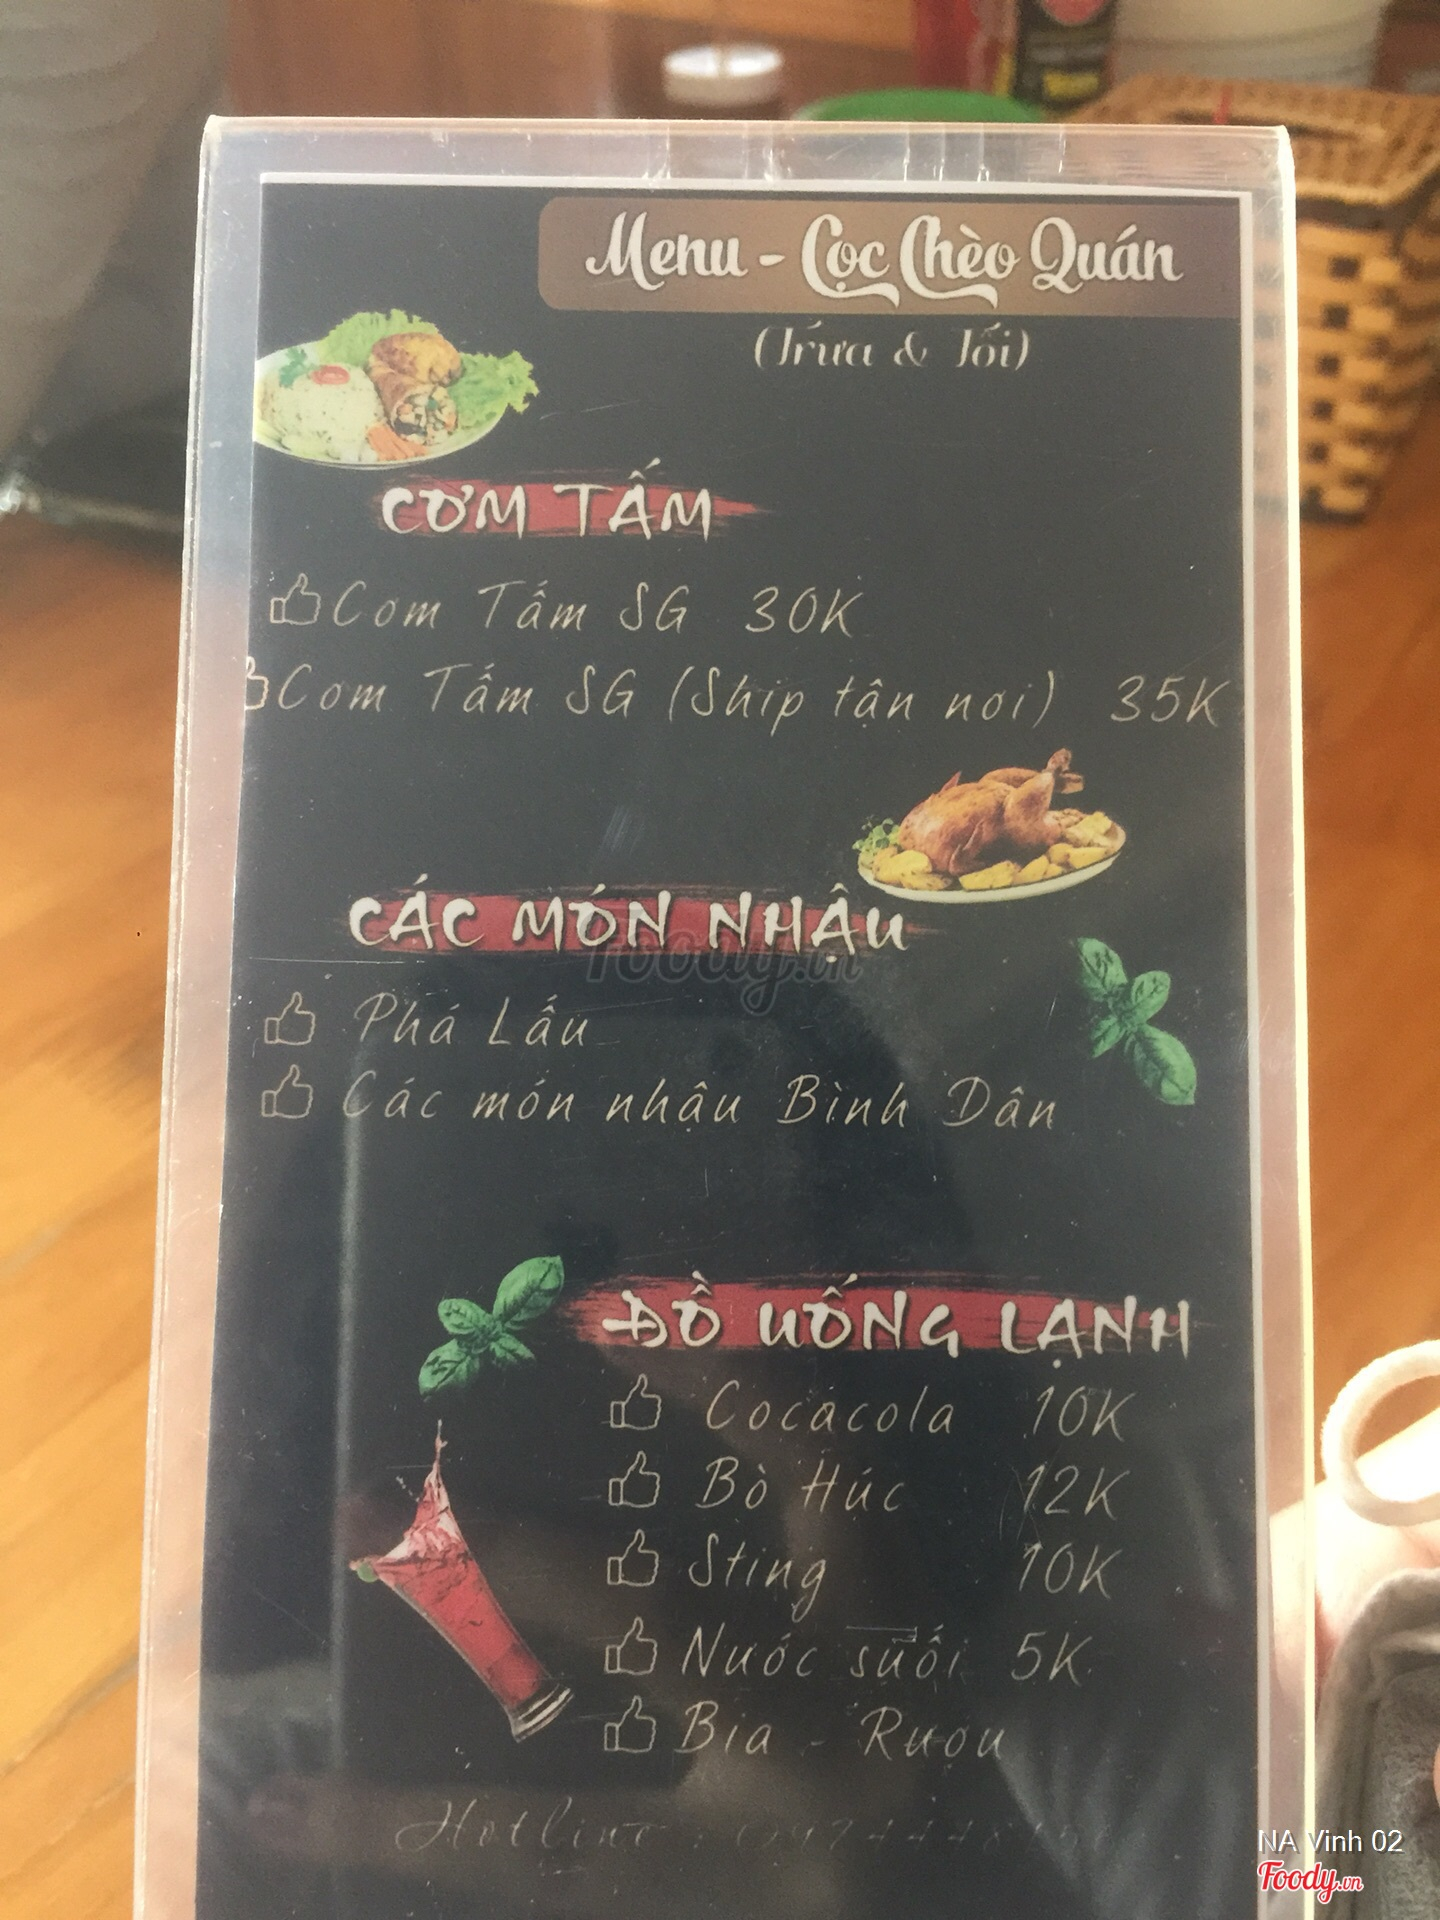 Menu - Cọc Chèo Quán
(Trưa & Tối)
CƠM TẤM
Cơm Tấm SG 30K
Cơm Tấm SG (Ship tận nơi) 35K
CÁC MÓN NHẬU
Foody.vn
Phá Lấu
Các món nhậu Bình Dân
ĐỒ UỐNG LẠNH
Cocacola 10K
Bò Húc 12K
Sting 10K
Nước suối 5K
Bia - Rượu
Hotline :
NA Vinh 02
Foody.vn